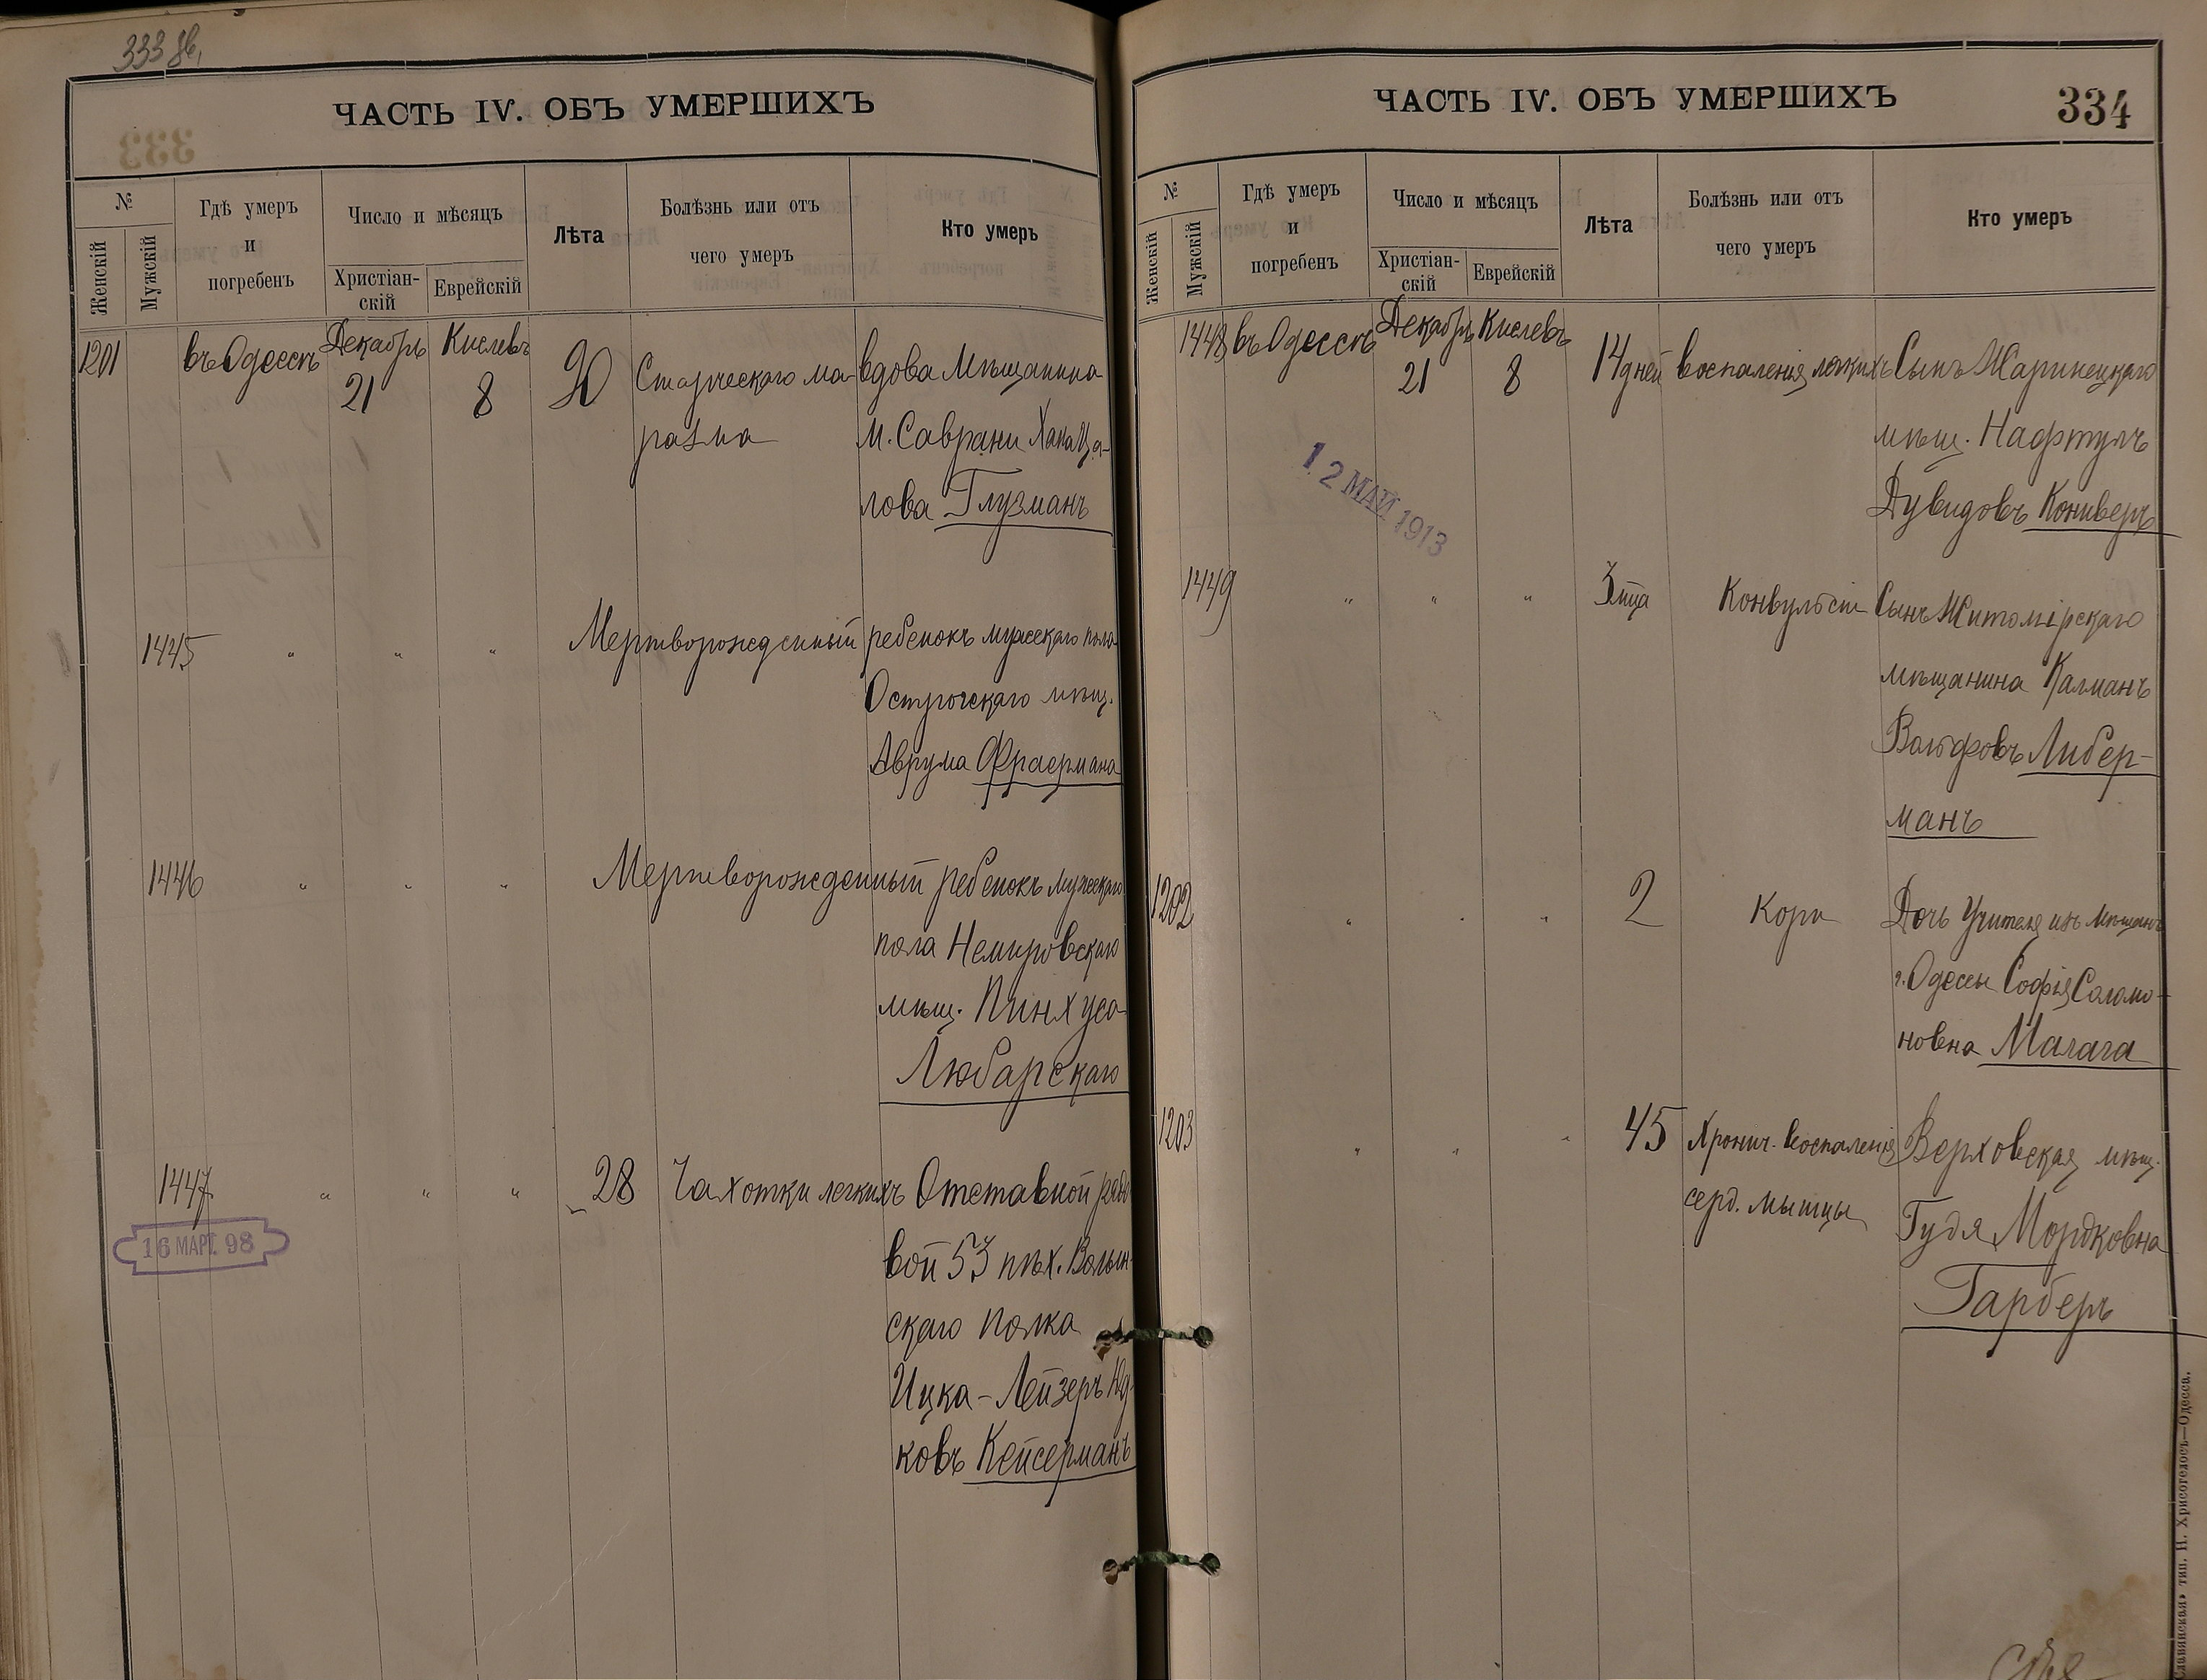 333 об.
ЧАСТЬ IV. ОБЪ УМЕРШИХЪ
№
Женскій
Мужскій
Гдѣ умеръ
и
погребенъ
Число и мѣсяцъ
Христіан-
скій
Еврейскій
Лѣта
Болѣзнь или отъ
чего умеръ
Кто умеръ
1201 въ Одессѣ Декабрь 21 Кислевъ 8 90 Старческаго ма-
разма
вдова Мѣщанина
м. Саврани Хана Ца-
лова Глузманъ
1445 " " " Мертворожденный ребенокъ мужескаго пола
Острогскаго мѣщ.
Аврума Фраермана
1446 " " " Мертворожденный ребенокъ мужескаго
пола Немировскаго
мѣщ. Пинхуса
Любарскаго
1447 " " " 28 Чахотки легкихъ Отставной рядо
вой 53 пѣх. Волын-
скаго полка
Ицка-Лейзеръ Юд-
ковъ Кейсерманъ
16 МАРТ. 98
ЧАСТЬ IV. ОБЪ УМЕРШИХЪ
334
№
Женскій
Мужскій
Гдѣ умеръ
и
погребенъ
Число и мѣсяцъ
Христіан-
скій
Еврейскій
Лѣта
Болѣзнь или отъ
чего умеръ
Кто умеръ
1448 въ Одессѣ Декабрь 21 Кислевъ 8 14 дней воспаленія легкихъ Сынъ Жаринецкаго
мѣщ. Нафтулъ
Дувидовъ Комиверъ
12 МАЙ 1913
1449 " " " 3 м-ца Конвульсіи Сынъ Житомірскаго
мѣщанина Калманъ
Вольфовъ Либер-
манъ
1202 " " " 2 Кори Дочь Учителя изъ мѣщанъ
г. Одессы Софія Соломо-
новна Малага
1203 " " " 45 Хронич. воспаленія
серд. мышцы
Верховская мѣщ.
Гудя Мордковна
Гарберъ
Славянская» тип. Н. Хрисогелосъ—Одесса.